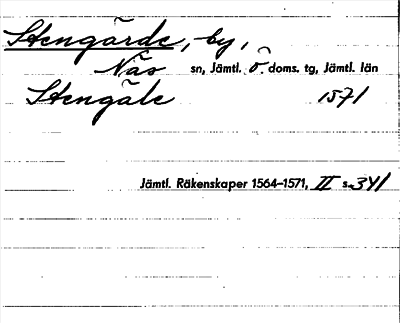 Stengärde, by,
Näs sn, Jämtl. ö. doms. tg, Jämtl. län
Stengäle 1571
Jämtl. Räkenskaper 1564–1571, II s. 341